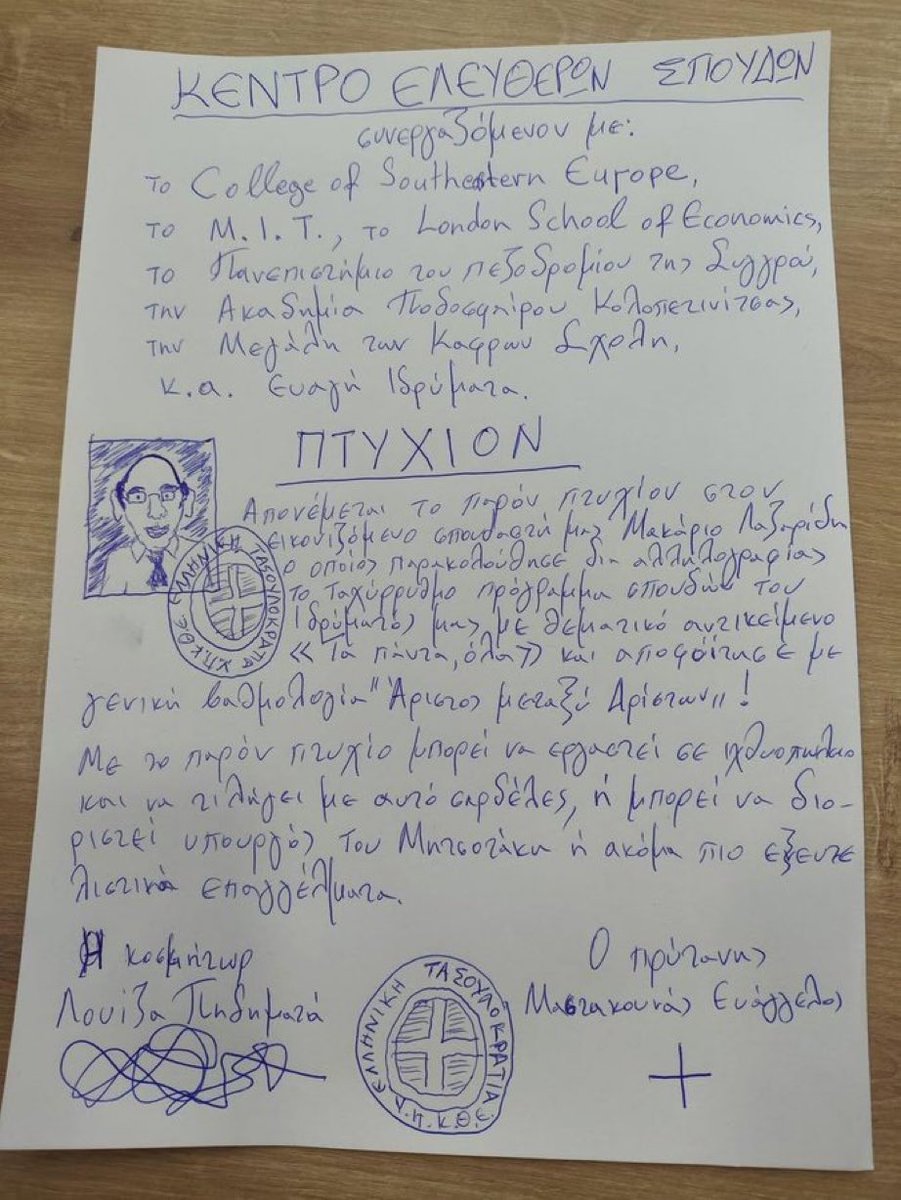 ΚΕΝΤΡΟ ΕΛΕΥΘΕΡΩΝ ΣΠΟΥΔΩΝ
συνεργαζόμενον με:
το College of Southeastern Europe,
το M.I.T., το London School of Economics,
το Πανεπιστήμιο του πεζοδρομίου της Συγγρού,
την Ακαδημία Ποδοσφαίρου Κολοπετινίτσας,
την Μεγάλη των Κάφρων Σχολή,
κ.α. Ευαγή Ιδρύματα.
ΠΤΥΧΙΟΝ
Απονέμεται το παρόν πτυχίον στον
εικονιζόμενο σπουδαστή μας Μακάριο Λαζαρίδη
ο οποίος παρακολούθησε δια αλληλογραφίας
το ταχύρρυθμο πρόγραμμα σπουδών του
Ιδρύματός μας με θεματικό αντικείμενο
«Τα πάντα, όλα» και αποφοίτησε με
γενική βαθμολογία "Άριστος μεταξύ Αρίστων"!
Με το παρόν πτυχίο μπορεί να εργαστεί σε ιχθυοπωλείο
και να τυλίγει με αυτό σαρδέλες, ή μπορεί να διο-
ριστεί υπουργός του Μητσοτάκη ή ακόμα πιο εξευτε
λιστικά επαγγέλματα.
ΕΛΛΗΝΙΚΗ ΤΑΣΟΥΛΟΚΡΑΤΙΑ
Η κοσμήτωρ
Λουίζα Πηδηματά
Ο πρύτανης
Μαστακουνάς Ευάγγελος
ΕΛΛΗΝΙΚΗ ΤΑΣΟΥΛΟΚΡΑΤΙΑ